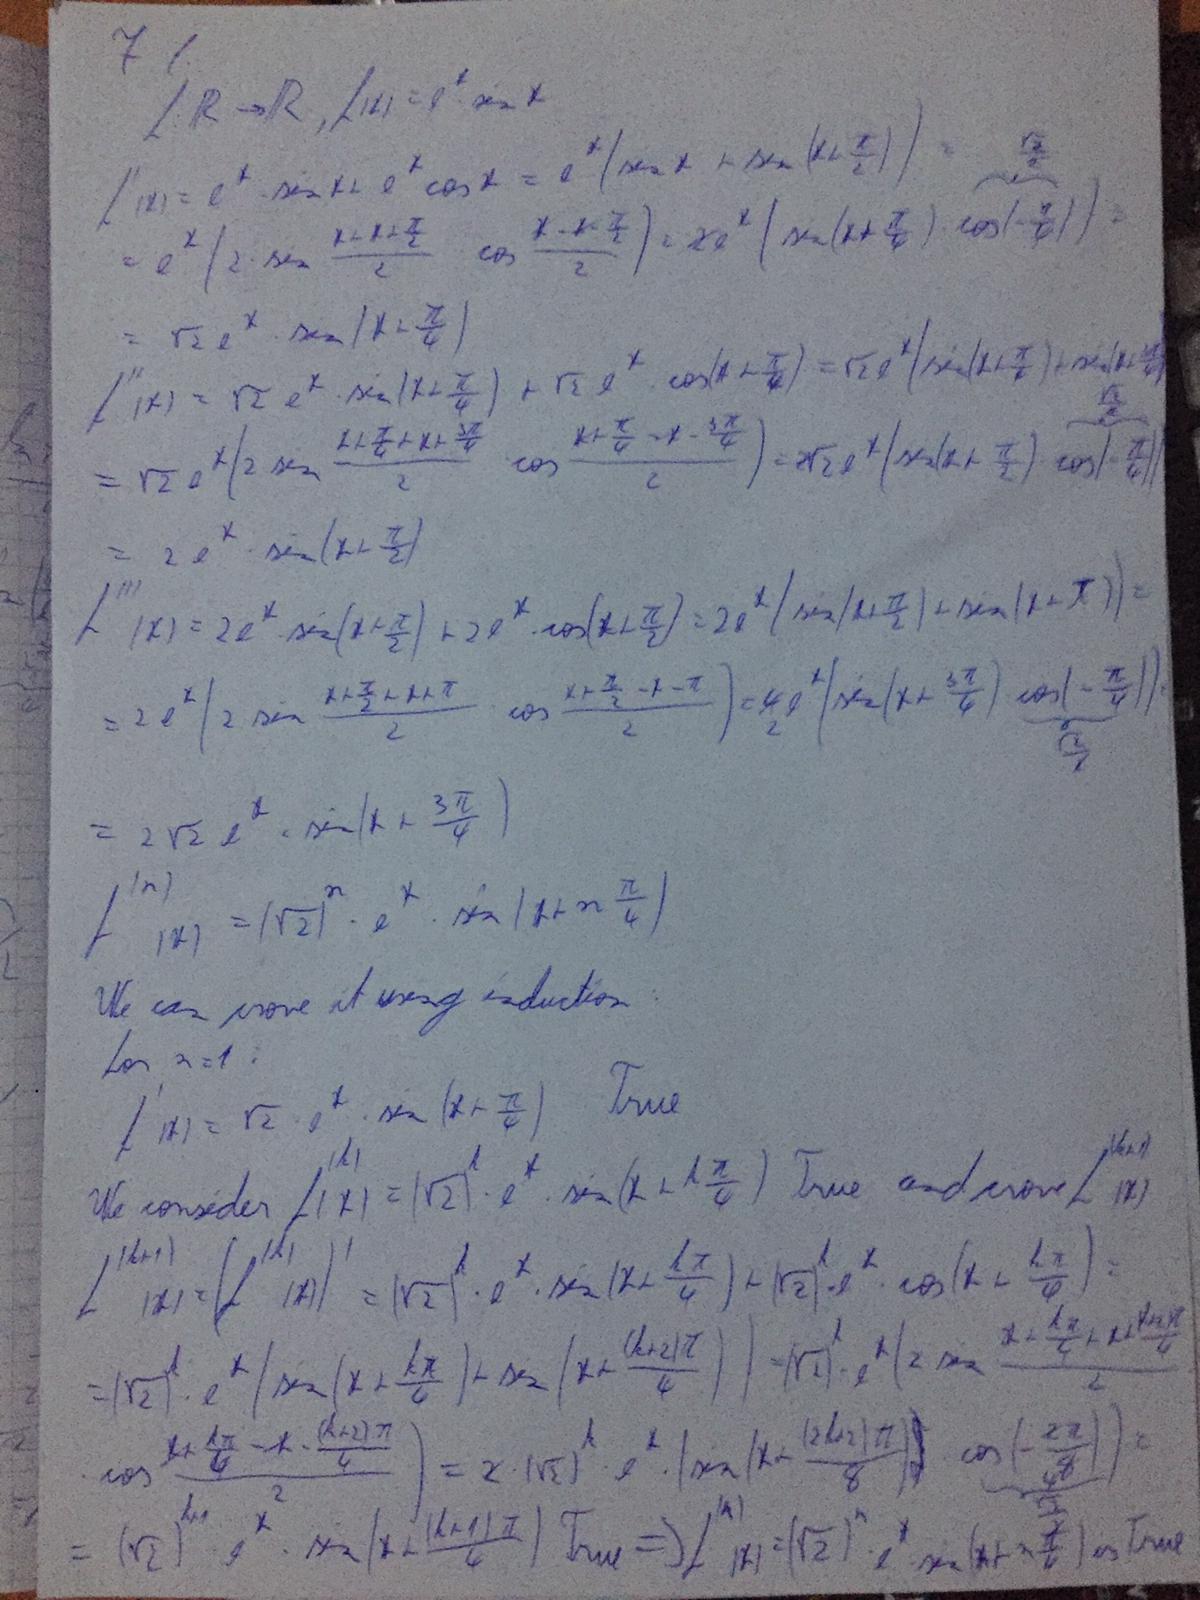 7 /.
f: ℝ → ℝ, f(x) = e^x · sin x
f'(x) = e^x · sin x + e^x cos x = e^x (sin x + sin(x + π/2)) =
= e^x (2 · sin (x + x + π/2)/2 cos (x - x - π/2)/2) = 2e^x (sin(x + π/4) · cos(-π/4)) = √2/2
= √2 e^x · sin(x + π/4)
f''(x) = √2 e^x · sin(x + π/4) + √2 e^x · cos(x + π/4) = √2 e^x (sin(x + π/4) + sin(x + 3π/4)
= √2 e^x (2 sin (x + π/4 + x + 3π/4)/2 cos (x + π/4 - x - 3π/4)/2) = 2√2 e^x (sin(x + π/2) · cos(-π/4)) √2/2
= 2 e^x · sin(x + π/2)
f'''(x) = 2e^x · sin(x + π/2) + 2e^x · cos(x + π/2) = 2e^x (sin(x + π/2) + sin(x + π)) =
= 2 e^x (2 sin (x + π/2 + x + π)/2 · cos (x + π/2 - x - π)/2) = 4 e^x (sin(x + 3π/4) cos(-π/4)) = √2/2
= 2√2 e^x · sin(x + 3π/4)
f^(n)(x) = (√2)^n · e^x · sin(x + n π/4)
We can prove it using induction:
for n = 1:
f'(x) = √2 · e^x · sin(x + π/4) True
We consider f^(k)(x) = (√2)^k · e^x · sin(x + k π/4) True and prove f^(k+1)(x)
f^(k+1)(x) = (f^(k)(x))' = (√2)^k · e^x · sin(x + kπ/4) + (√2)^k · e^x · cos(x + kπ/4) =
= (√2)^k · e^x (sin(x + kπ/4) + sin(x + (k+2)π/4)) = (√2)^k · e^x (2 sin (x + kπ/4 + x + (k+2)π/4)/2
· cos (x + kπ/4 - x - (k+2)π/4)/2) = 2 · (√2)^k · e^x · (sin(x + (2k+2)π/8) · cos(-2π/8)) = √2/2
= (√2)^(k+1) · e^x · sin(x + (k+1)π/4) True ⇒ f^(n)(x) = (√2)^n · e^x · sin(x + n π/4) is True